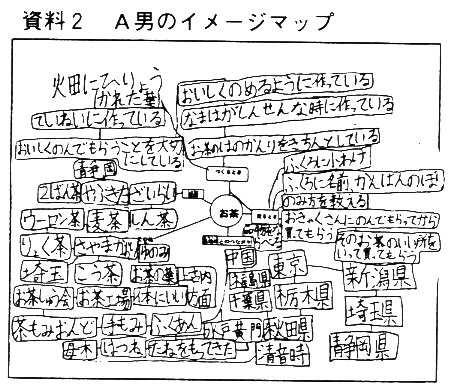 資料2 A男のイメージマップ
火田にひりょう
かれた葉
ていねいに作っている
おいしくのめるように作っている
なまはがしんせんな時に作っている
お茶のはのかんりをきちんとしている
おいしくのんでもらうことを大切
にしている
つくるとき
静岡
ふくろに小わけ
ふくろに名前、かんばんのぼり
のみ方を教える
2ばん茶
やぶきた
ざいらい
お茶
売るとき
おきゃくさんにのんでもらってから
買ってもらう
ウーロン茶
麦茶
しん茶
りょく茶
さやまかおり
中国
東京
新潟県
埼玉
こう茶
お茶の葉
福島県
千葉県
栃木県
埼玉県
お茶しゅう会
お茶工場
体にいい
茶もみおんど
手もみ
ふくあん
水戸黄門
秋田県
静岡県
母木
たねをもってきた
清音時